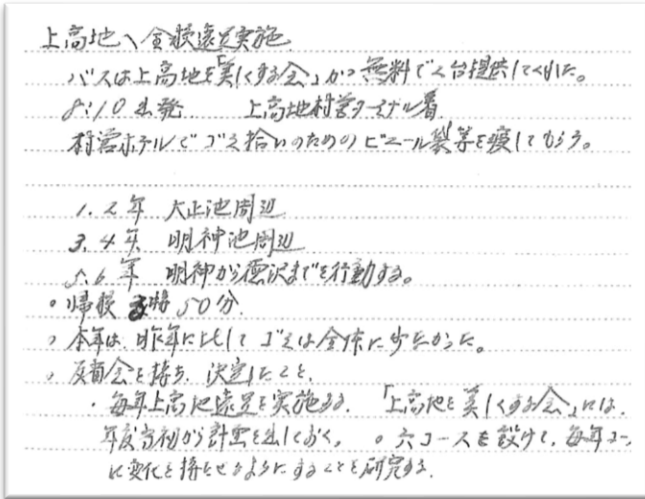 上高地へ全校遠足実施
バスは上高地を「美しくする会」から無料で2台提供してくれた。
8:10出発 上高地村営ターミナル着
村営ホテルでゴミ拾いのためのビニール袋等を渡してもらう。
1.2年 大正池周辺
3.4年 明神池周辺
5.6年 明神から徳沢までを行動する。
○帰校 3時50分
○本年は、昨年に比してゴミは全体に少なかった。
○反省会を持ち、決定したこと、
・毎年上高地遠足を実施する。 「上高地を美しくする会」には、
年度当初から計画を出しておく。 ○六コースを設けて、毎年コー
に変化を持たせるようにすることを研究する。